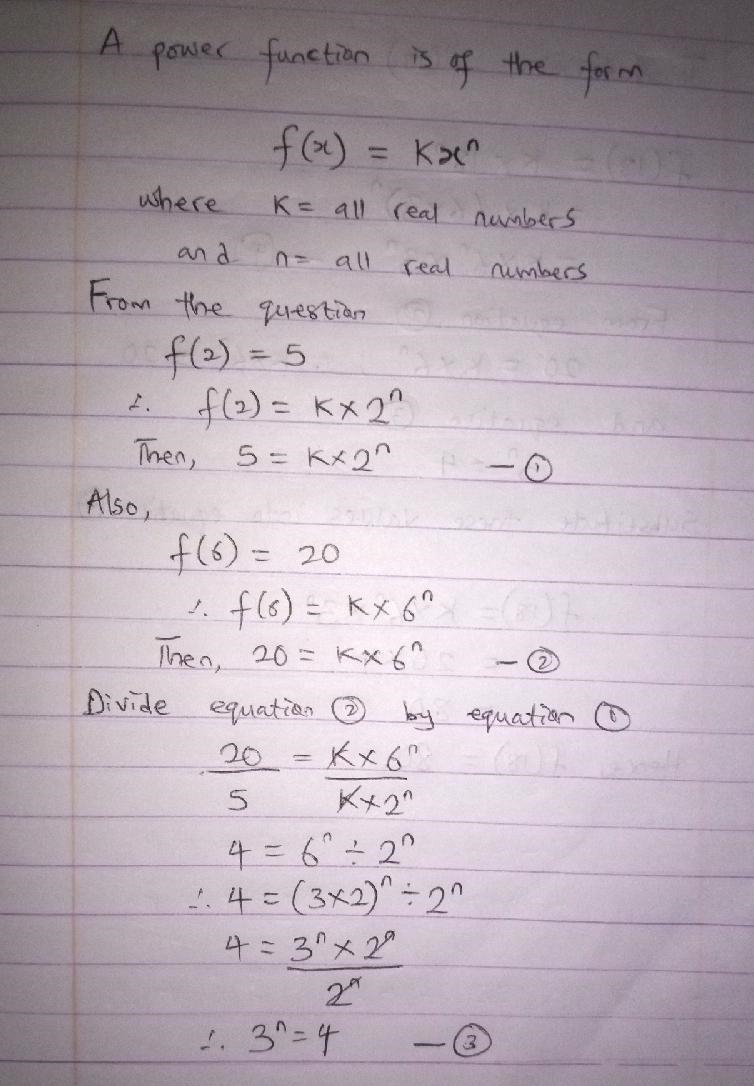 A power function is of the form
f(x) = Kxⁿ
where K = all real numbers
and n = all real numbers
From the question
f(2) = 5
∴ f(2) = K×2ⁿ
Then, 5 = K×2ⁿ —①
Also,
f(6) = 20
∴ f(6) = K×6ⁿ
Then, 20 = K×6ⁿ —②
Divide equation ② by equation ①
20 = K×6ⁿ
5 K×2ⁿ
4 = 6ⁿ ÷ 2ⁿ
∴ 4 = (3×2)ⁿ ÷ 2ⁿ
4 = 3ⁿ × 2ⁿ
2ⁿ
∴ 3ⁿ = 4 —③